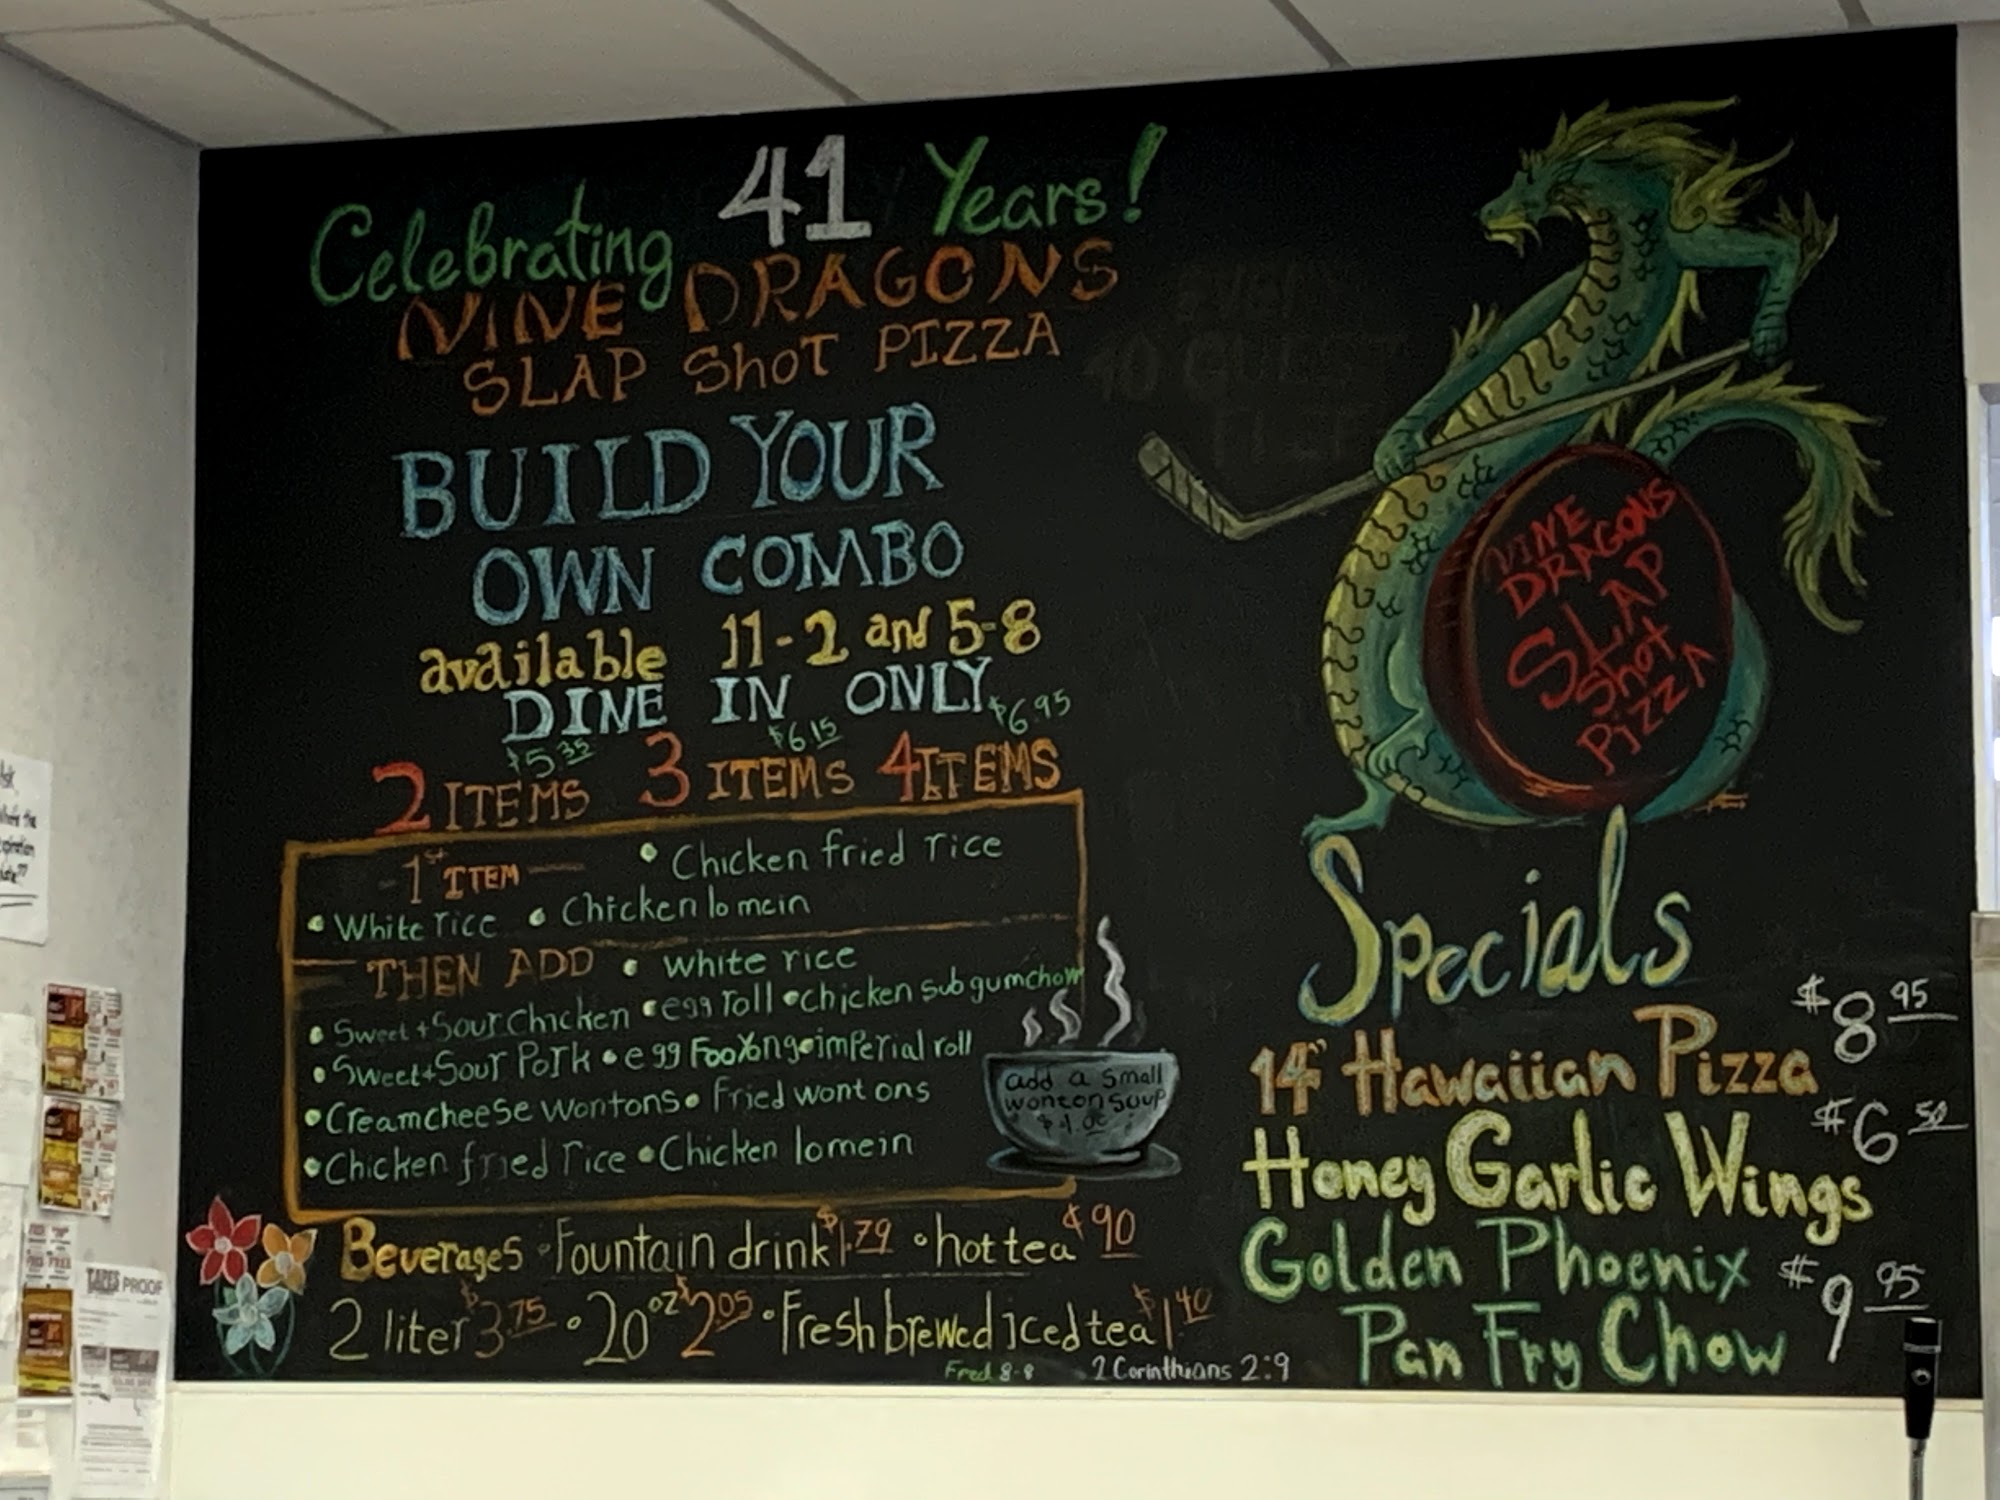 Celebrating 41 Years!
NINE DRAGONS
SLAP ShOT PIZZA
BUILD YOUR
OWN COMBO
available 11-2 and 5-8
DINE IN ONLY
$5.35 $6.15 $6.95
2 ITEMS 3 ITEMS 4 ITEMS
-1st ITEM • Chicken fried rice
• White rice • Chicken lo mein
THEN ADD • white rice
• Sweet + Sour Chicken • egg roll • Chicken sub gum chow
• Sweet + Sour Pork • egg Foo Yong • imperial roll
• Creamcheese wontons • Fried wontons
• Chicken fried rice • Chicken lomein
add a small
wonton soup
Beverages • Fountain drink $1.79 • hot tea ¢90
2 liter $3.75 • 20 oz $2.05 • Fresh brewed iced tea $1.40
Fred 8-8 2 Corinthians 2:9
NINE
DRAGONS
SLAP
Shot
PizzA
Specials
14" Hawaiian Pizza $8.95
Honey Garlic Wings $6.50
Golden Phoenix
Pan Fry Chow $9.95
PROOF